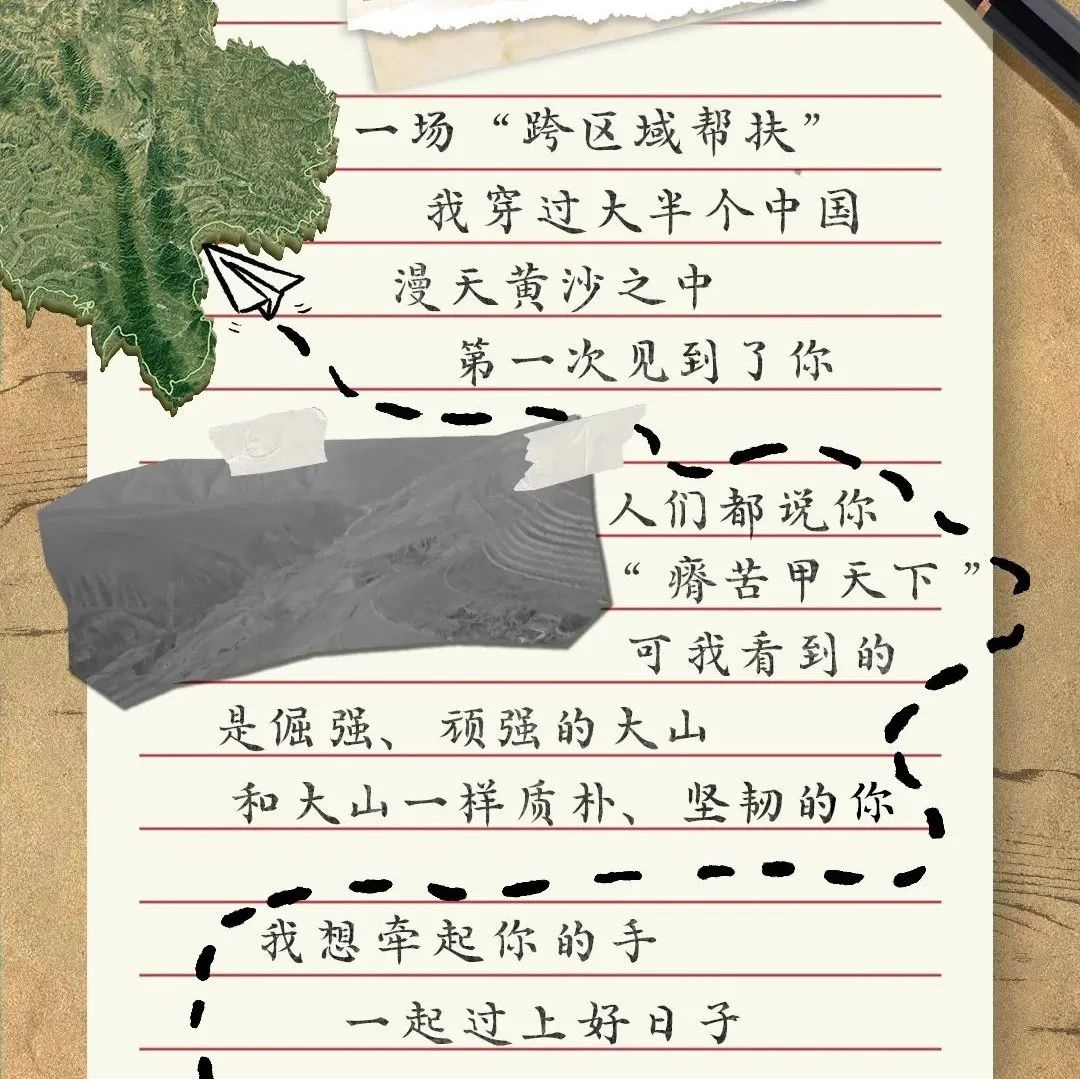 一场“跨区域帮扶”
我穿过大半个中国
漫天黄沙之中
第一次见到了你
人们都说你
“瘠苦甲天下”
可我看到的
是倔强、顽强的大山
和大山一样质朴、坚韧的你
我想牵起你的手
一起过上好日子